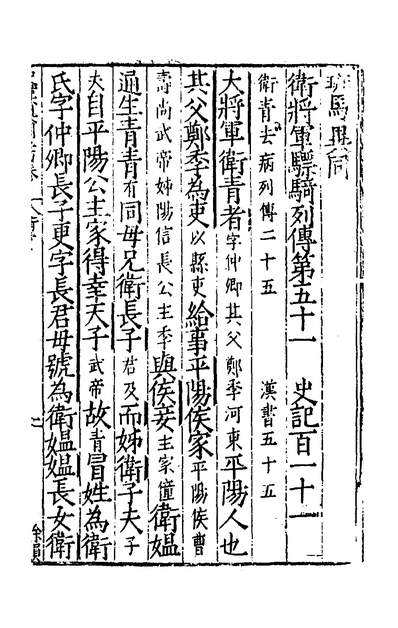 班馬異同
衛將軍驃騎列傳第五十一　史記百一十一
衛青去病列傳二十五　漢書五十五
大將軍衛青者字仲卿其父鄭季河東平陽人也
其父鄭季為吏以縣吏給事平陽侯家平陽侯曹
壽尚武帝姊陽信長公主季與侯妾主家僮衛媪
通生青青有同母兄衛長子君及而姊衛子夫子
夫自平陽公主家得幸天子武帝故青冒姓為衛
氏字仲卿長子更字長君母號為衛媪媪長女衛